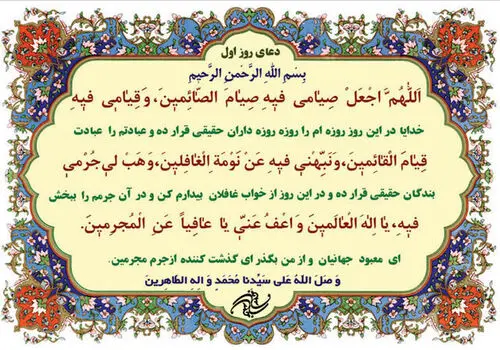 دعای روز اول
بِسْمِ اللهِ الرَّحْمنِ الرَّحیمِ
اَللّهُمَّ اجْعَلْ صِیامی فیهِ صِیامَ الصّائِمینَ، وَقِیامی فیهِ
خدایا در این روز روزه ام را روزه روزه داران حقیقی قرار ده و عبادتم را عبادت
قِیامَ الْقائِمینَ، وَنَبِّهْنی فیهِ عَنْ نَوْمَةِ الْغافِلینَ، وَهَبْ لی جُرْمی
بندگان حقیقی قرار ده و در این روز از خواب غافلان بیدارم کن و در آن جرمم را ببخش
فیهِ، یا اِلهَ الْعالَمینَ وَ اعْفُ عَنّی یا عافِیاً عَنِ الْمُجرِمینَ.
ای معبود جهانیان و از من بگذر ای گذشت کننده ازجرم مجرمین.
وَ صَلَ اللهُ عَلی سَیِّدِنا مُحَمَّدٍ وَ الِهِ الطّاهِرینَ